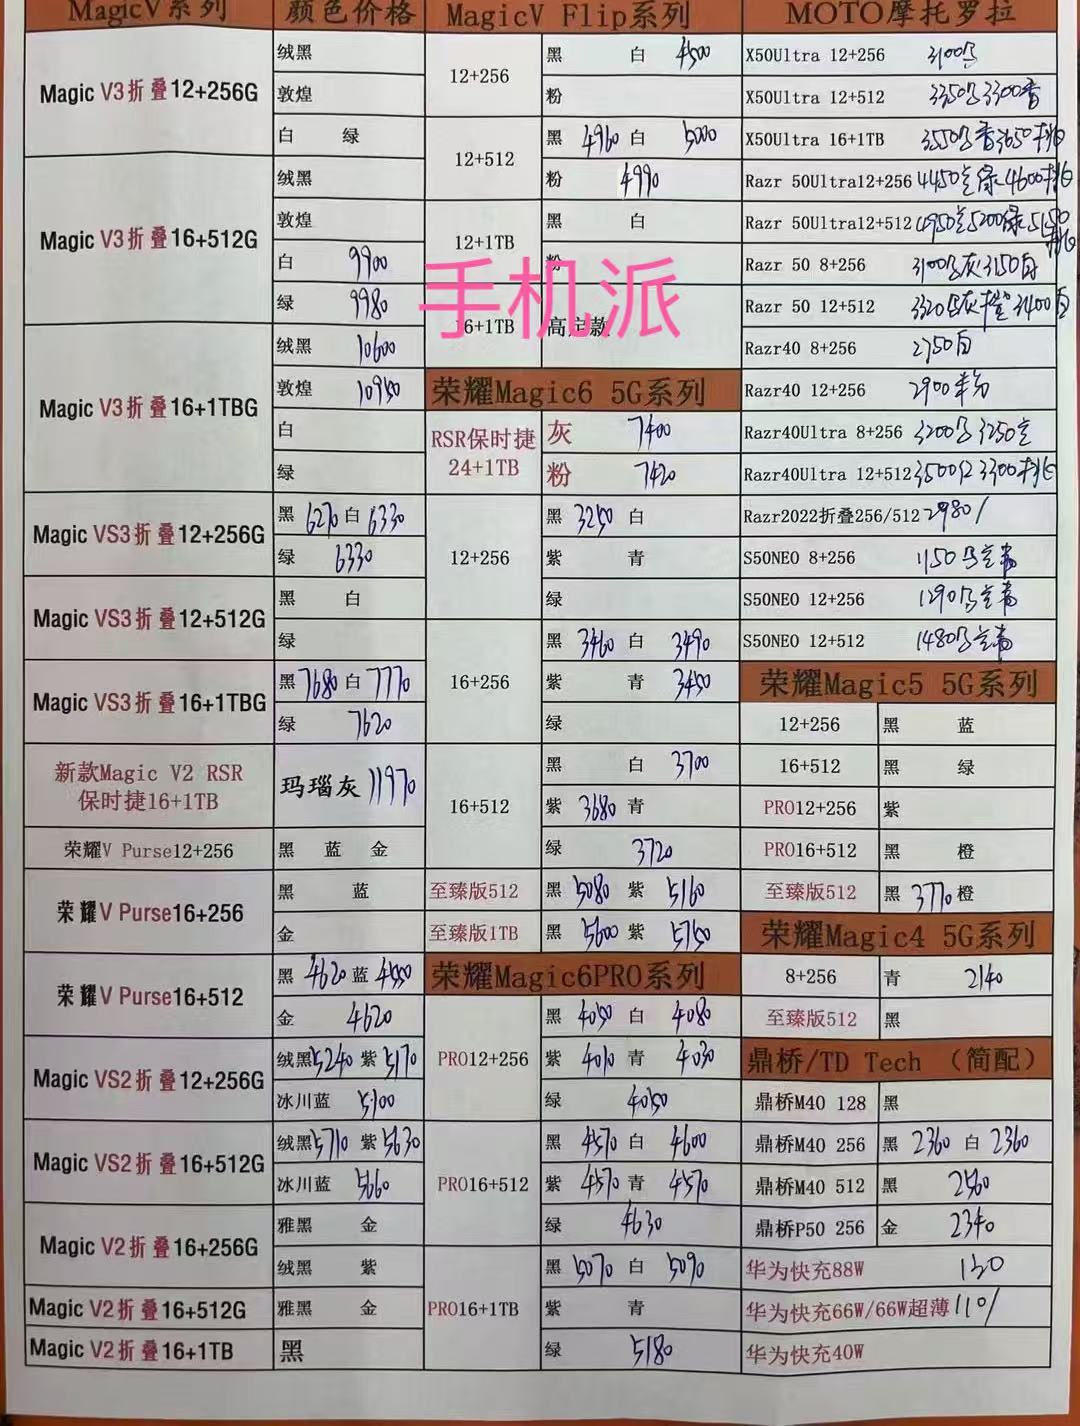 MagicV系列 颜色价格
Magic V3折叠12+256G
绒黑
敦煌
白 绿
Magic V3折叠16+512G
绒黑
敦煌
白 9900
绿 9980
Magic V3折叠16+1TBG
绒黑 10600
敦煌 10950
白
绿
Magic VS3折叠12+256G
黑 6270 白 6330
绿 6330
Magic VS3折叠12+512G
黑 白
绿
Magic VS3折叠16+1TBG
黑 7680 白 7770
绿 7620
新款Magic V2 RSR
保时捷16+1TB
玛瑙灰 11970
荣耀V Purse12+256
黑 蓝 金
荣耀V Purse16+256
黑 蓝
金
荣耀V Purse16+512
黑 4620 蓝 4550
金 4620
Magic VS2折叠12+256G
绒黑 5240 紫 5170
冰川蓝 5100
Magic VS2折叠16+512G
绒黑 5710 紫 5630
冰川蓝 5660
Magic V2折叠16+256G
雅黑 金
绒黑 紫
Magic V2折叠16+512G
雅黑 金
Magic V2折叠16+1TB
黑
MagicV Flip系列
12+256
黑 白 4500
粉
12+512
黑 4960 白 5000
粉 4990
12+1TB
黑 白
粉
16+1TB
高定款
手机派
荣耀Magic6 5G系列
RSR保时捷
24+1TB
灰 7400
粉 7420
12+256
黑 3250 白
紫 青
绿
16+256
黑 3460 白 3490
紫 青 3450
绿
16+512
黑 白 3700
紫 3680 青
绿 3720
至臻版512
黑 5080 紫 5160
至臻版1TB
黑 5600 紫 5750
荣耀Magic6PRO系列
PRO12+256
黑 4050 白 4080
紫 4010 青 4030
绿 4050
PRO16+512
黑 4570 白 4600
紫 4570 青 4570
绿 4630
PRO16+1TB
黑 5070 白 5090
紫 青
绿 5180
MOTO摩托罗拉
X50Ultra 12+256 3100
X50Ultra 12+512 3350 3300
X50Ultra 16+1TB 3550 3650
Razr 50Ultra12+256 4450 绿 4600
Razr 50Ultra12+512 4950 5200绿 5150
Razr 50 8+256 3100 灰 3150白
Razr 50 12+512 3320 灰 3400白
Razr40 8+256 2750白
Razr40 12+256 2900
Razr40Ultra 8+256 3200 3250
Razr40Ultra 12+512 3500 3300
Razr2022折叠256/512 2980/
S50NEO 8+256 1150
S50NEO 12+256 1290
S50NEO 12+512 1480
荣耀Magic5 5G系列
12+256 黑 蓝
16+512 黑 绿
PRO12+256 紫
PRO16+512 黑 橙
至臻版512 黑 3770 橙
荣耀Magic4 5G系列
8+256 青 2140
至臻版512 黑
鼎桥/TD Tech （简配）
鼎桥M40 128 黑
鼎桥M40 256 黑 2360 白 2360
鼎桥M40 512 黑 2560
鼎桥P50 256 金 2340
华为快充88W 130
华为快充66W/66W超薄 110/
华为快充40W